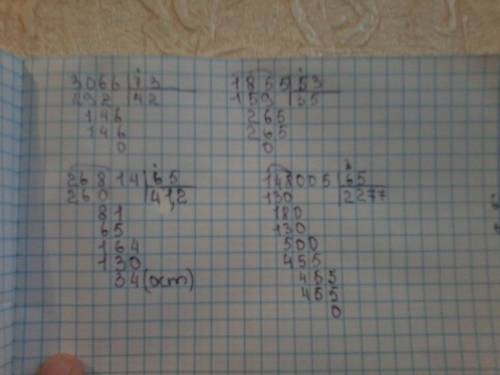 3066 | 73
292 | 42
146
146
0
1855 | 53
159 | 35
265
265
0
26814 | 65
260 | 412
81
65
164
130
34(ост)
148005 | 65
130 | 2277
180
130
500
455
455
455
0